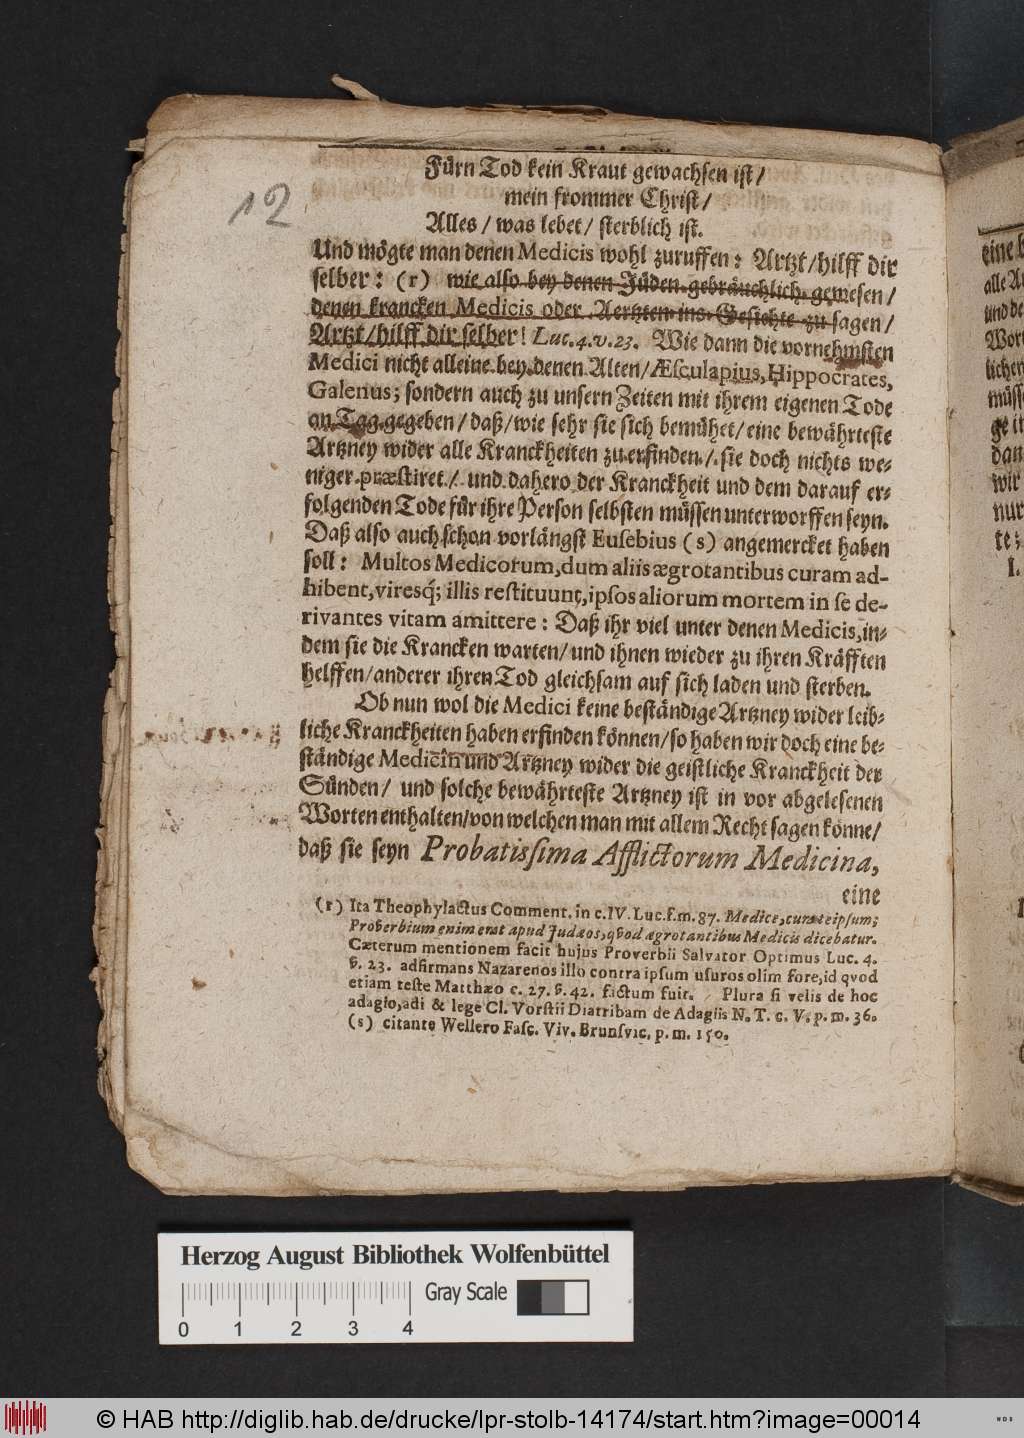 12
Fürn Tod kein Kraut gewachsen ist/
mein frommer Christ/
Alles/ was lebet/ sterblich ist.
Und mögte man denen Medicis wohl zuruffen: Artzt/hilff dir
selber: (r) wie also bey denen Jüden gebräuchlich gewesen/
denen krancken Medicis oder Aertzten ins Gesichte zu sagen/
Artzt/hilff dir selber! Luc. 4. v. 23. Wie dann die vornehmsten
Medici nicht alleine bey denen Alten/Æſculapius, Hippocrates,
Galenus; sondern auch zu unsern Zeiten mit ihrem eigenen Tode
an Tag gegeben/ daß/wie sehr sie sich bemühet/eine bewährteste
Artzney wider alle Kranckheiten zu erfinden/ sie doch nichts we-
niger præstiret/ und dahero der Kranckheit und dem darauf er-
folgenden Tode für ihre Person selbsten müssen unterworffen seyn.
Daß also auch schon vorlängst Euſebius (s) angemercket haben
soll: Multos Medicorum, dum aliis ægrotantibus curam ad-
hibent, viresq́; illis reſtituunt, ipſos aliorum mortem in ſe de-
rivantes vitam amittere: Daß ihr viel unter denen Medicis, in-
dem sie die Krancken warten/ und ihnen wieder zu ihren Kräfften
helffen/anderer ihren Tod gleichsam auf sich laden und sterben.
Ob nun wol die Medici keine beständige Artzney wider leib-
liche Kranckheiten haben erfinden können/so haben wir doch eine be-
ständige Medicin und Artzney wider die geistliche Kranckheit der
Sünden/ und solche bewährteste Artzney ist in vor abgelesenen
Worten enthalten/von welchen man mit allem Recht sagen könne/
daß sie seyn Probatiſſima Afflictorum Medicina,
eine
(r) Ita Theophylactus Comment. in c. IV. Luc. f. m. 87. Medice, cura te ipſum;
Proverbium enim erat apud Judæos, qvod ægrotantibus Medicis dicebatur.
Cæterum mentionem facit hujus Proverbii Salvator Optimus Luc. 4.
v. 23. adfirmans Nazarenos illo contra ipſum uſuros olim fore, id qvod
etiam teſte Matthæo c. 27. v. 42. factum fuit. Plura ſi velis de hoc
adagio, adi & lege Cl. Vorſtii Diatribam de Adagiis N. T. c. V. p. m. 36.
(s) citante Wellero Faſc. Viv. Brunſvic. p. m. 150.
Herzog August Bibliothek Wolfenbüttel
Gray Scale
0 1 2 3 4
© HAB http://diglib.hab.de/drucke/lpr-stolb-14174/start.htm?image=00014